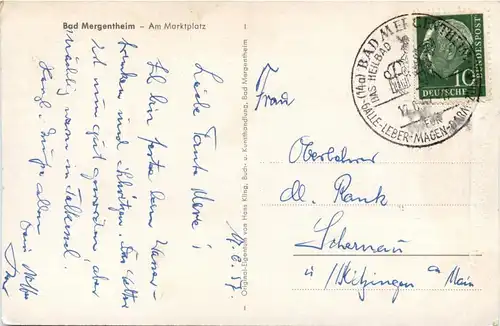 Bad Mergentheim — Am Marktplatz
17. 6. 57.
Liebe Tante Marie!
Ich bin feste beim Wasser-
trinken und Schwitzen. Das Wetter
ist nun gut geworden, aber
mächtig warm im Talkessel.
Herzl. Grüße allen
Dein Neffe
Original-Eigentum von Hans Kling, Buch- u. Kunsthandlung, Bad Mergentheim
(14a) BAD MERGENTHEIM
DAS HEILBAD
FÜR
GALLE-LEBER-MAGEN-DARM
10
DEUTSCHE BUNDESPOST
Frau
Oberlehrer
Rank
Schernau
ü/Kitzingen am Main